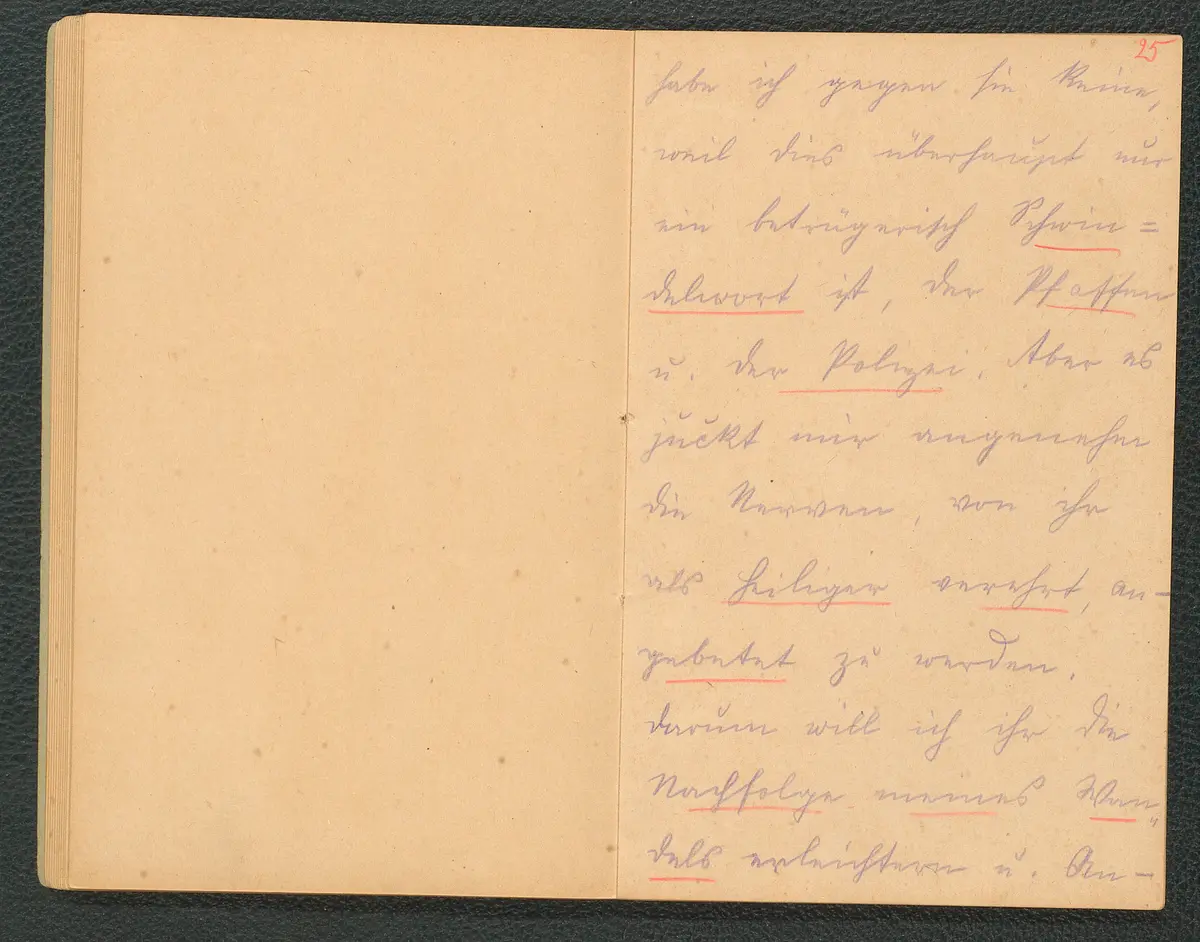 25
habe ich gegen sie keine,
weil dies überhaupt nur
ein betrügerisch Schwin=
delwort ist, der Pfaffen
u. der Polizei. Aber es
juckt mir angenehm
die Nerven, von ihr
als Heiliger verehrt, an-
gebetet zu werden.
Darum will ich ihr die
Nachfolge meines Wan„
dels erleichtern u. An-